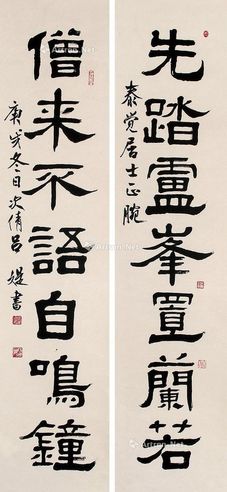 先踏盧峯置蘭若
泰覺居士正腕
僧来不語自鳴鐘
庚戌冬日次倩吕媞書